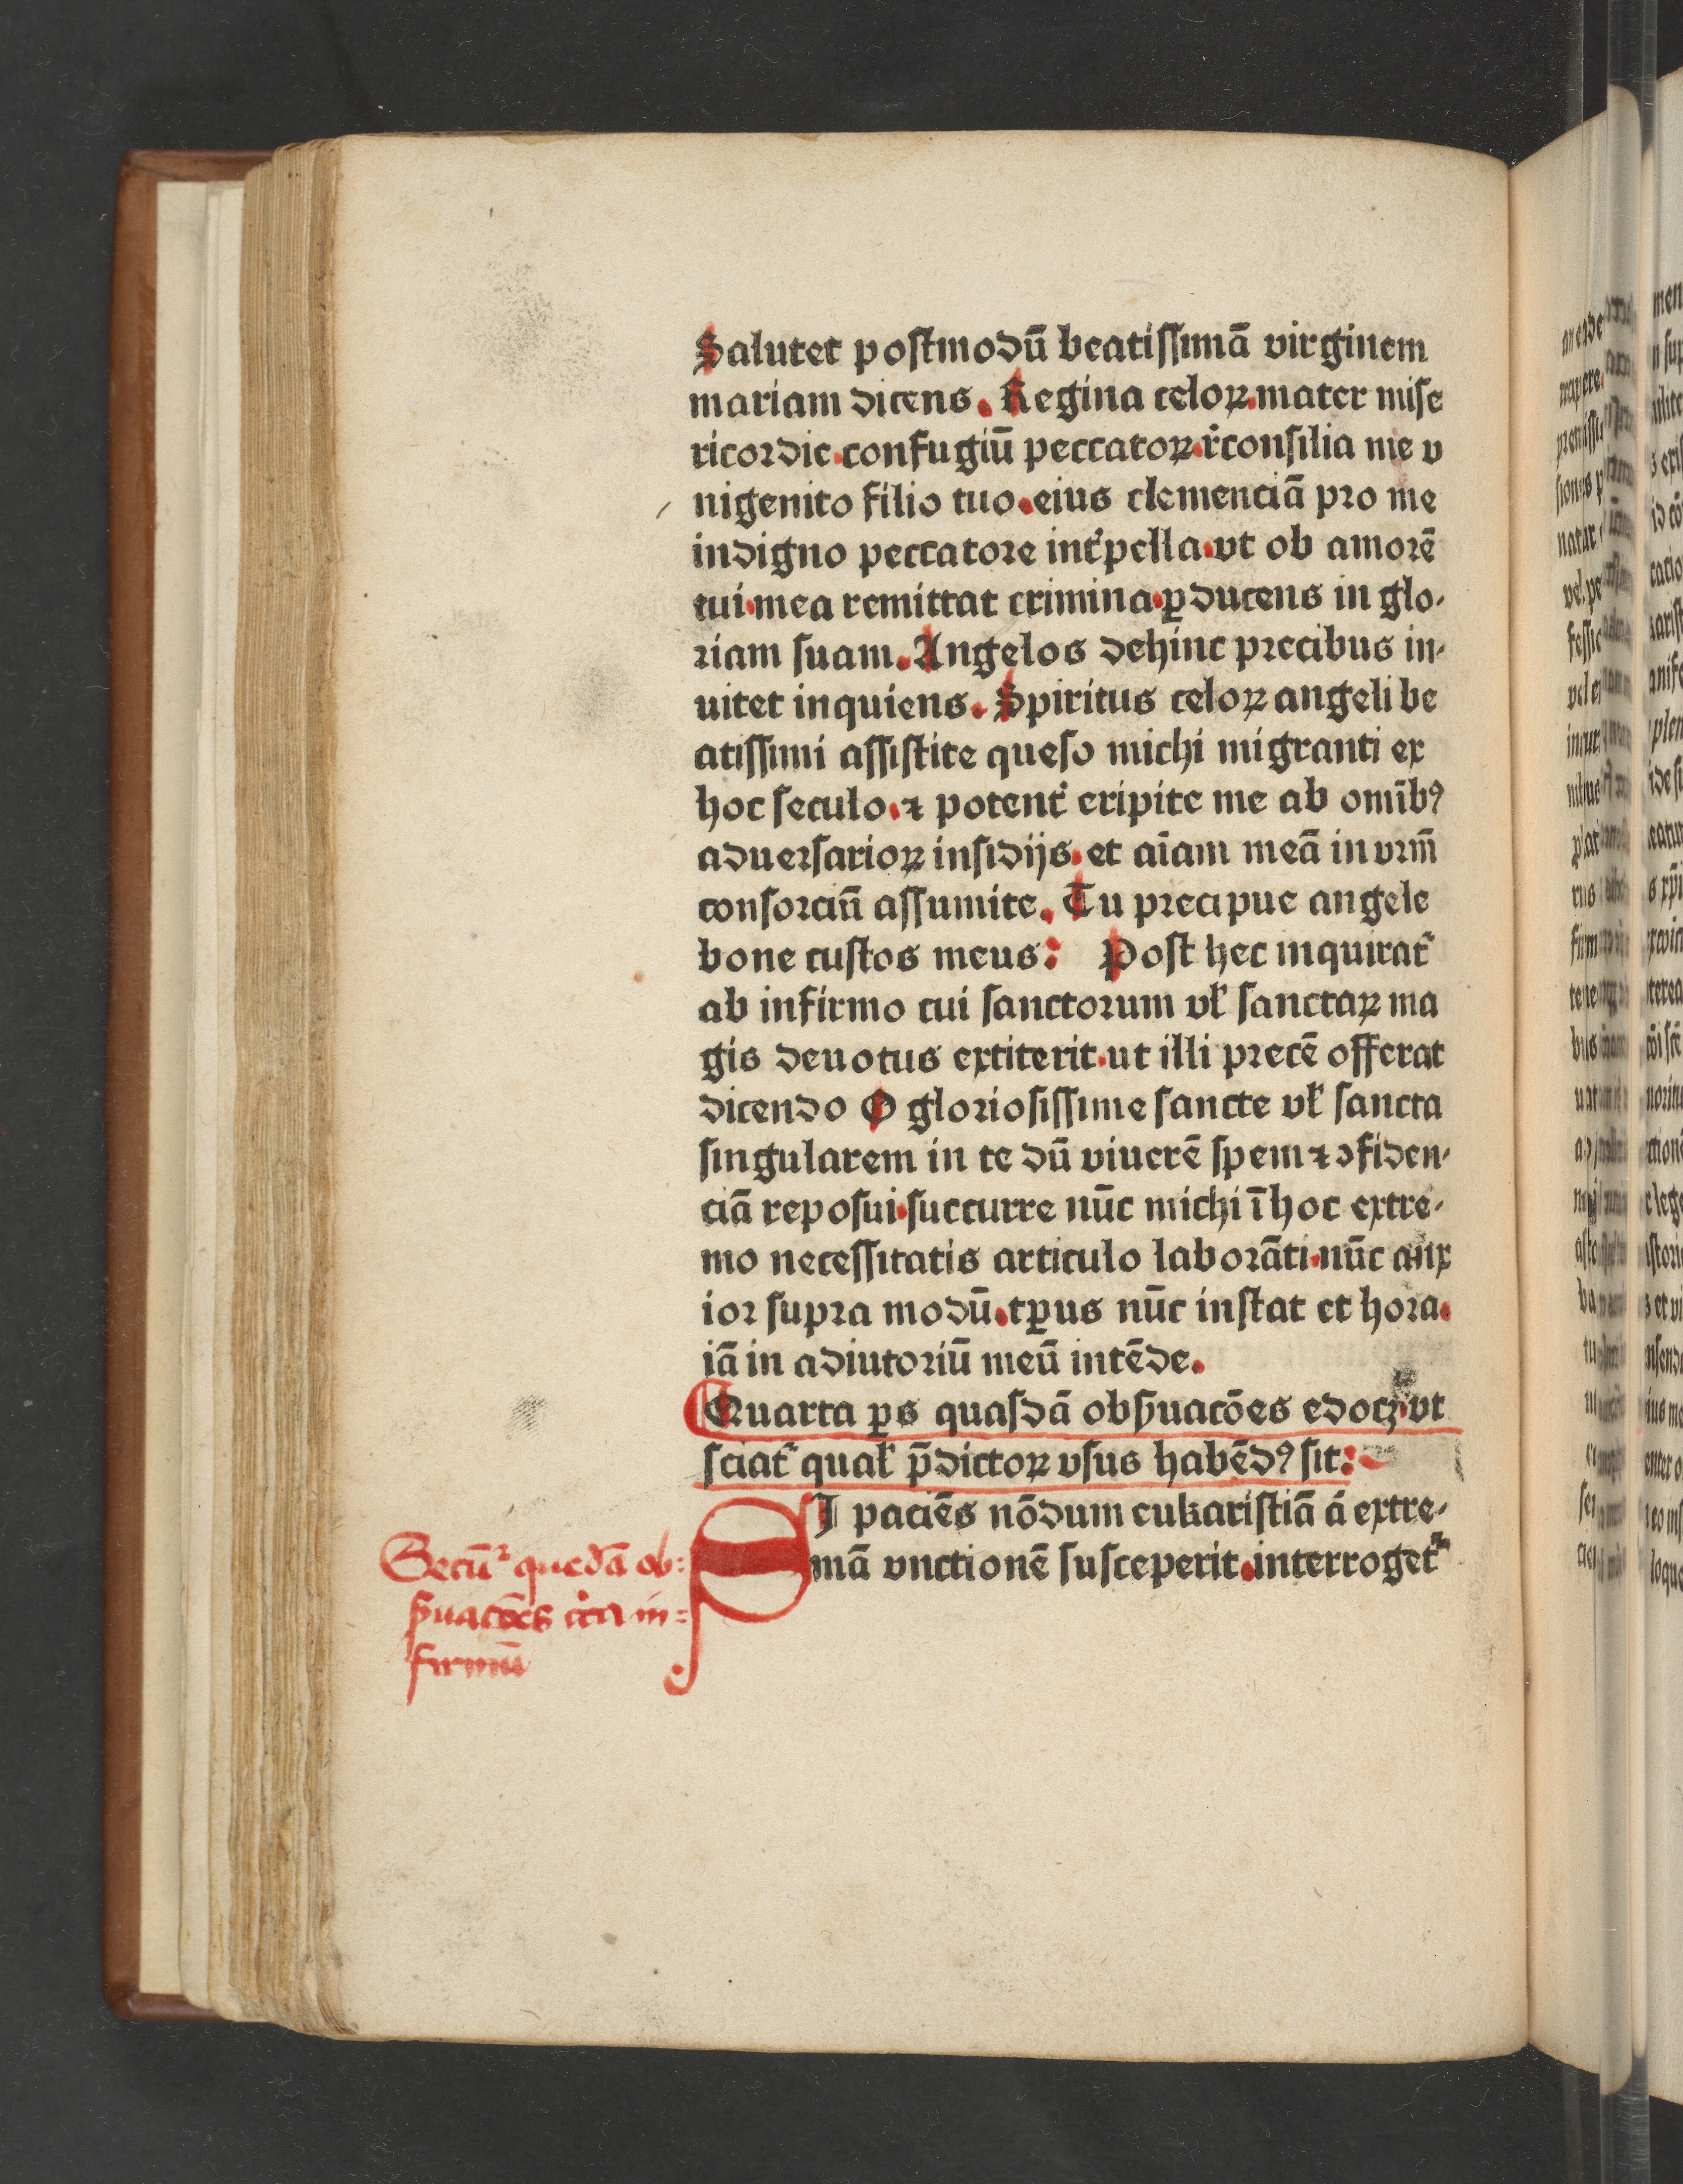 Salutet postmodū beatissimā virginem
mariam dicens. Regina celoꝝ.mater mise
ricordie.confugiū peccatoꝝ.r̓consilia me v
nigenito filio tuo.eius clemenciā pro me
indigno peccatore int̓pella.vt ob amorē
tui.mea remittat crimina.ꝑducens in glo⸗
riam suam. Angelos dehinc precibus in⸗
uitet inquiens. Spiritus celoꝝ angeli be
atissimi assistite queso michi migranti ex
hoc seculo.⁊ potent̓ eripite me ab omībꝰ
aduersarioꝝ insidijs.et aīam meā in vrm̄
consorciū assumite. Tu precipue angele
bone custos meus: Post hec inquirat̓
ab infirmo cui sanctorum vl̓ sanctaꝝ ma
gis deuotus extiterit.ut illi precē offerat
dicendo O gloriosissime sancte vl̓ sancta
singularem in te dū viuerē spem ⁊ ↄfiden⸗
ciā reposui.succurre nūc michi ī hoc extre⸗
mo necessitatis articulo laborāti.nūc anx
ior supra modū.tꝑus nūc instat et hora.
iā in adiutoriū meū intēde.
Quarta ꝑs quasdā obẜuacōes edocꝫ.vt
sciat̓ qual̓ p̄dictoꝝ vsus habēdꝰ sit:
SI paciēs nōdum eukaristiā á extre⸗
mā vnctionē susceperit.interroget̓
Secū² quedā ob⸗
ẜuacōes circa in⸗
firmū